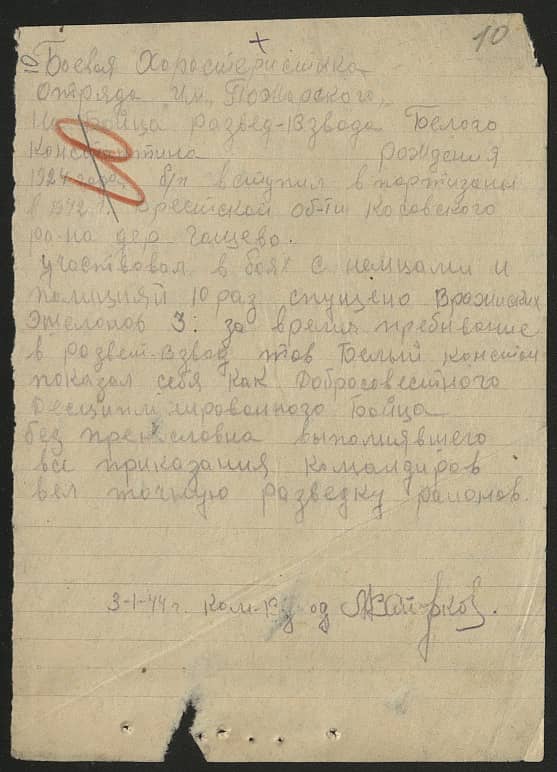 10
Боевая Харастеристыка
отряда им. "Пожарского"
На бойца развед-взвода Белого
Константина рождения
1924 года б/п вступил в партизаны
в 1942 г. Брестской об-ти Косовского
ра-на дер Гащево.
участвовал в боях с немцами и
полицияй 10 раз спущено Вражиских
Эшелонов 3: за время пребывание
в развет-взвод тов Белый констан
показал себя как Добросовестного
Десциплинированного Бойца
без прекословна выполнявшего
все приказания командиров
вел точную разведку районов.
3-1-44 г. Ком-р од